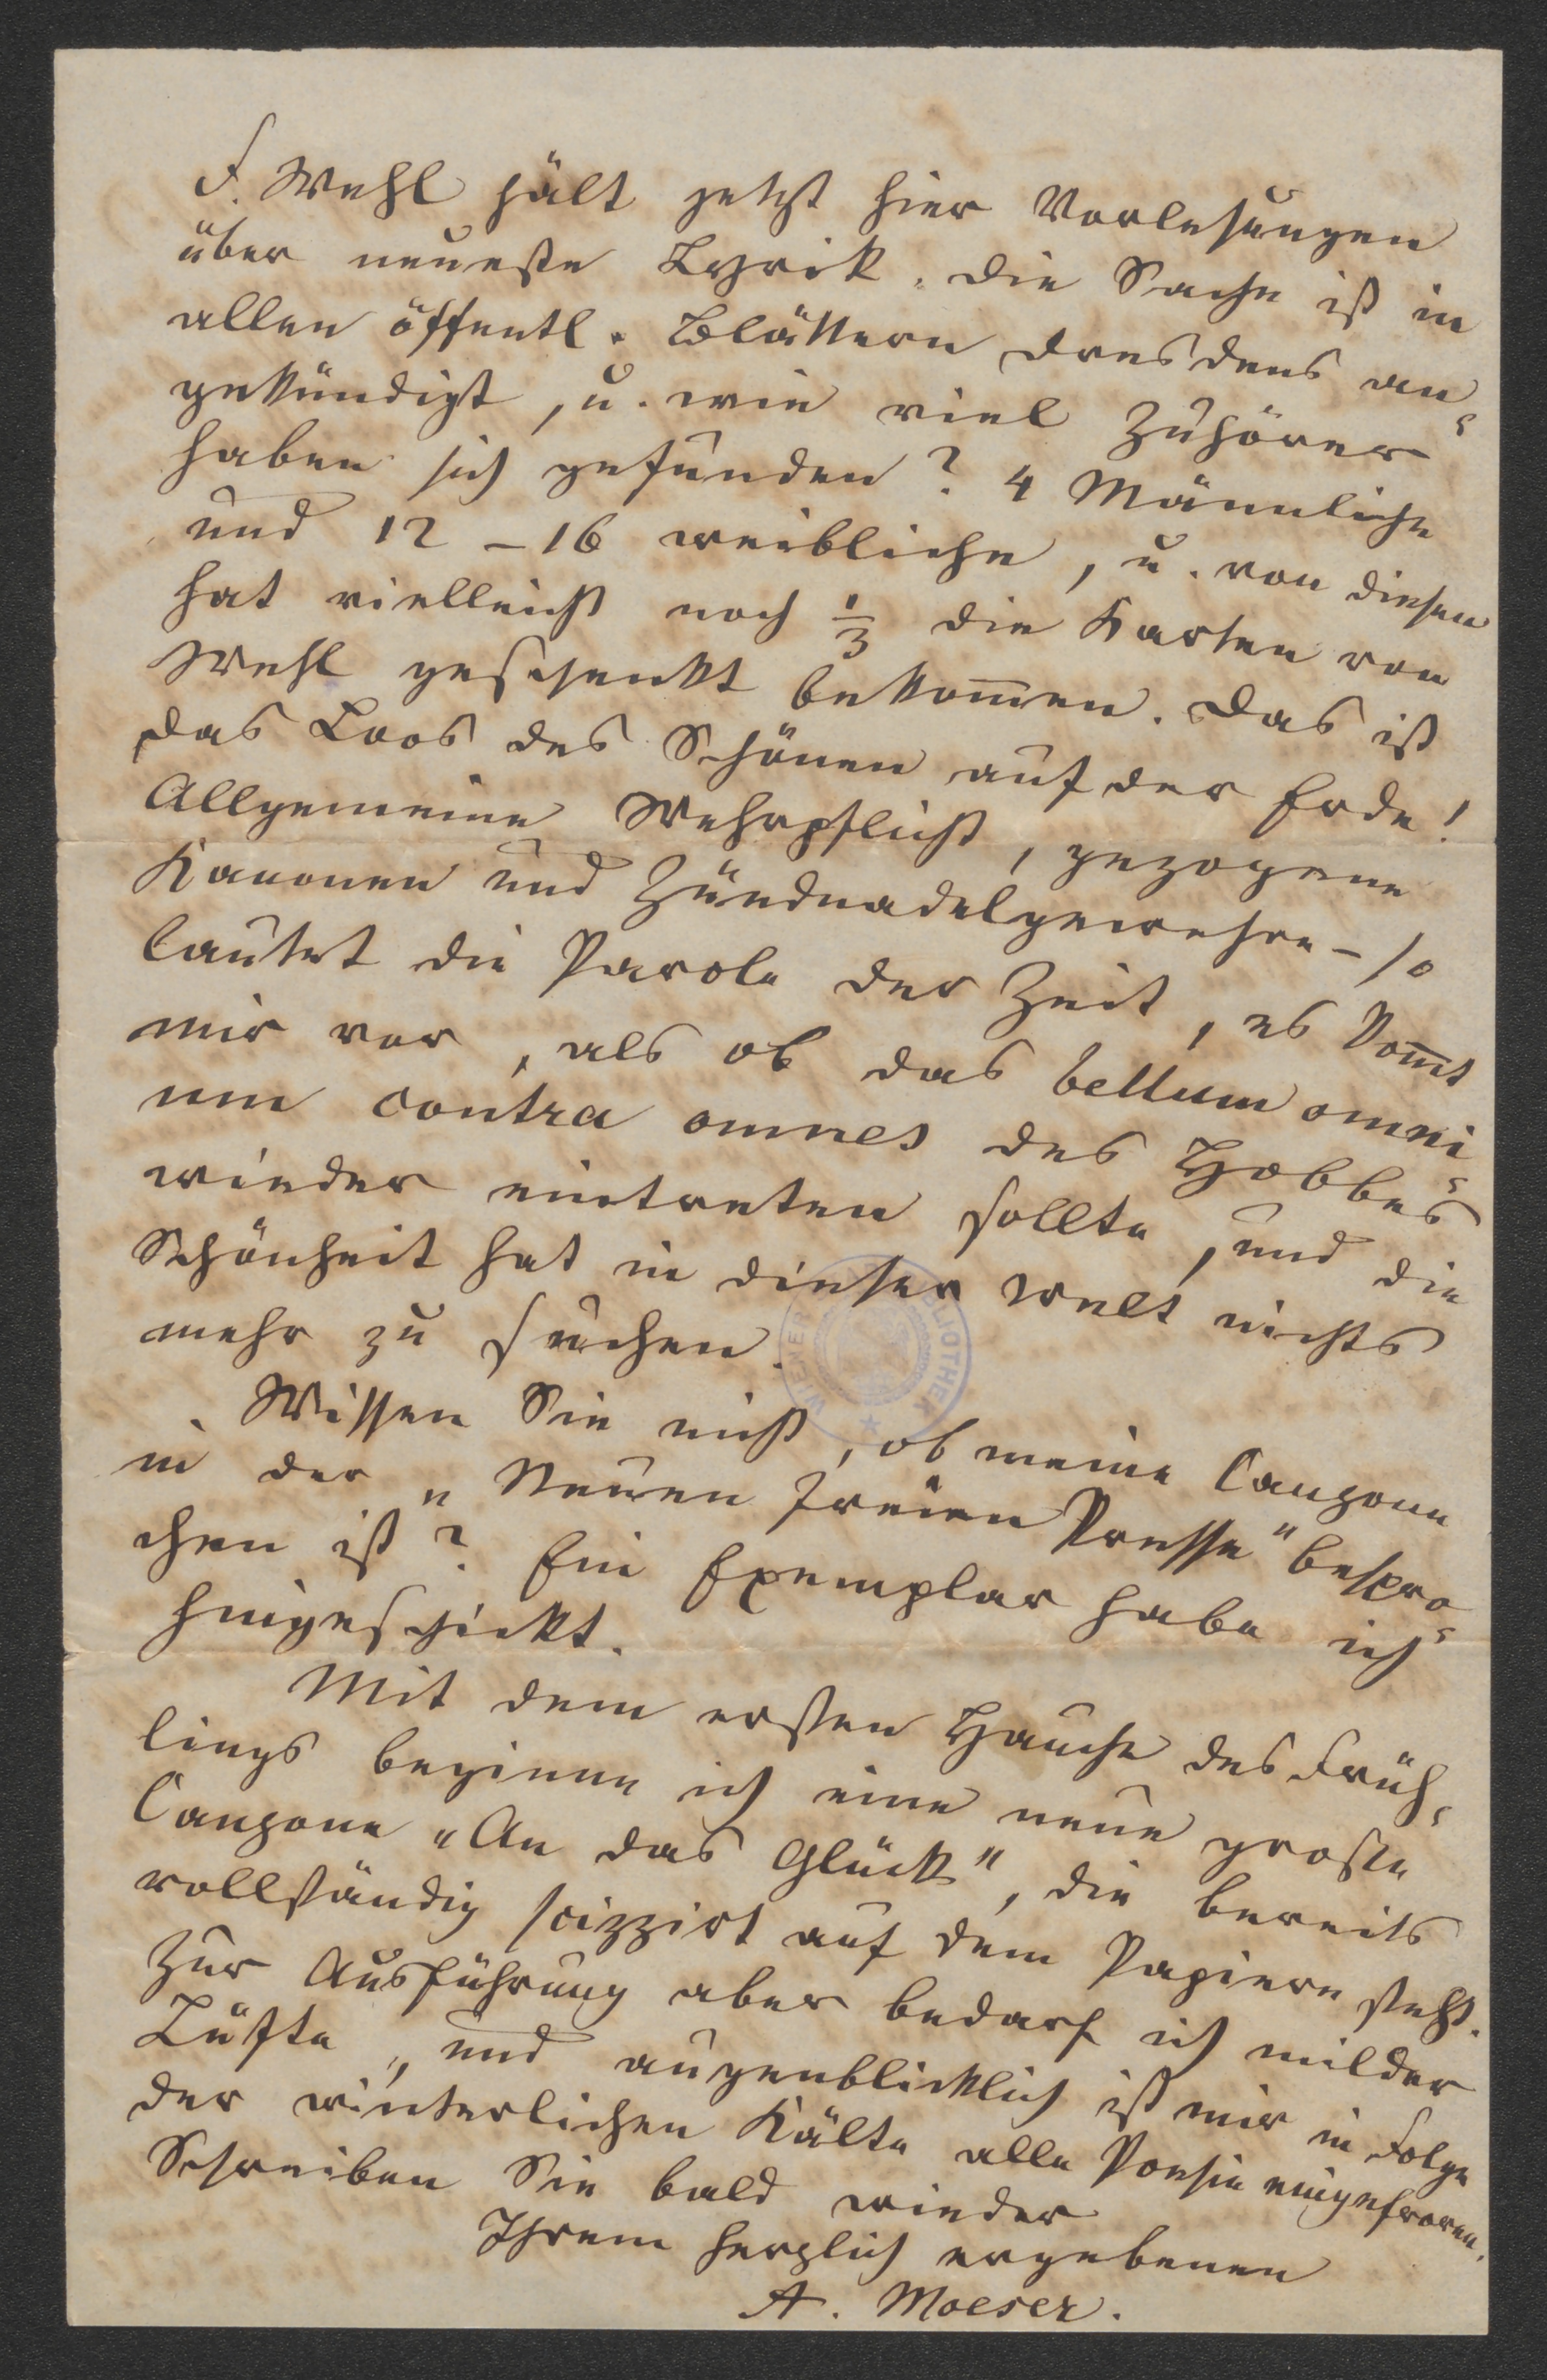 F. Wehl hält jetzt hier Vorlesungen
über neueste Lyrik. Die Sache ist in
allen öffentl. Blättern Dresdens an-
gekündigt, u. wie viel Zuhörer
haben sich gefunden? 4 Männliche
und 12 – 16 weibliche, u. von diesen
hat vielleicht noch 1/3 die Karten von
Wehl geschenkt bekom̅en. Das ist
das Loos des Schönen auf der Erde!
Allgemeine Wehrpflicht, gezogene
Kanonen und Zündnadelgewehre – so
lautet die Parole der Zeit, es kom̅t
mir vor, als ob das bellum omni-
um contra omnes des Hobbes
wieder eintreten sollte, und die
Schönheit hat in dieser Welt nichts
mehr zu suchen.
Wissen Sie nicht, ob meine Canzone
in der „Neuen freien Presse" bespro-
chen ist? Ein Exemplar habe ich
hingeschickt.
Mit dem ersten Hauche des Früh-
lings beginne ich eine neue große
Canzone „An das Glück", die bereits
vollständig scizzirt auf dem Papiere steht.
Zur Ausführung aber bedarf ich milder
Lüfte, und augenblicklich ist mir in Folge
der winterlichen Kälte alle Poesie eingefroren.
Schreiben Sie bald wieder
Ihrem herzlich ergebenen
A. Moeser.
WIENER BIBLIOTHEK